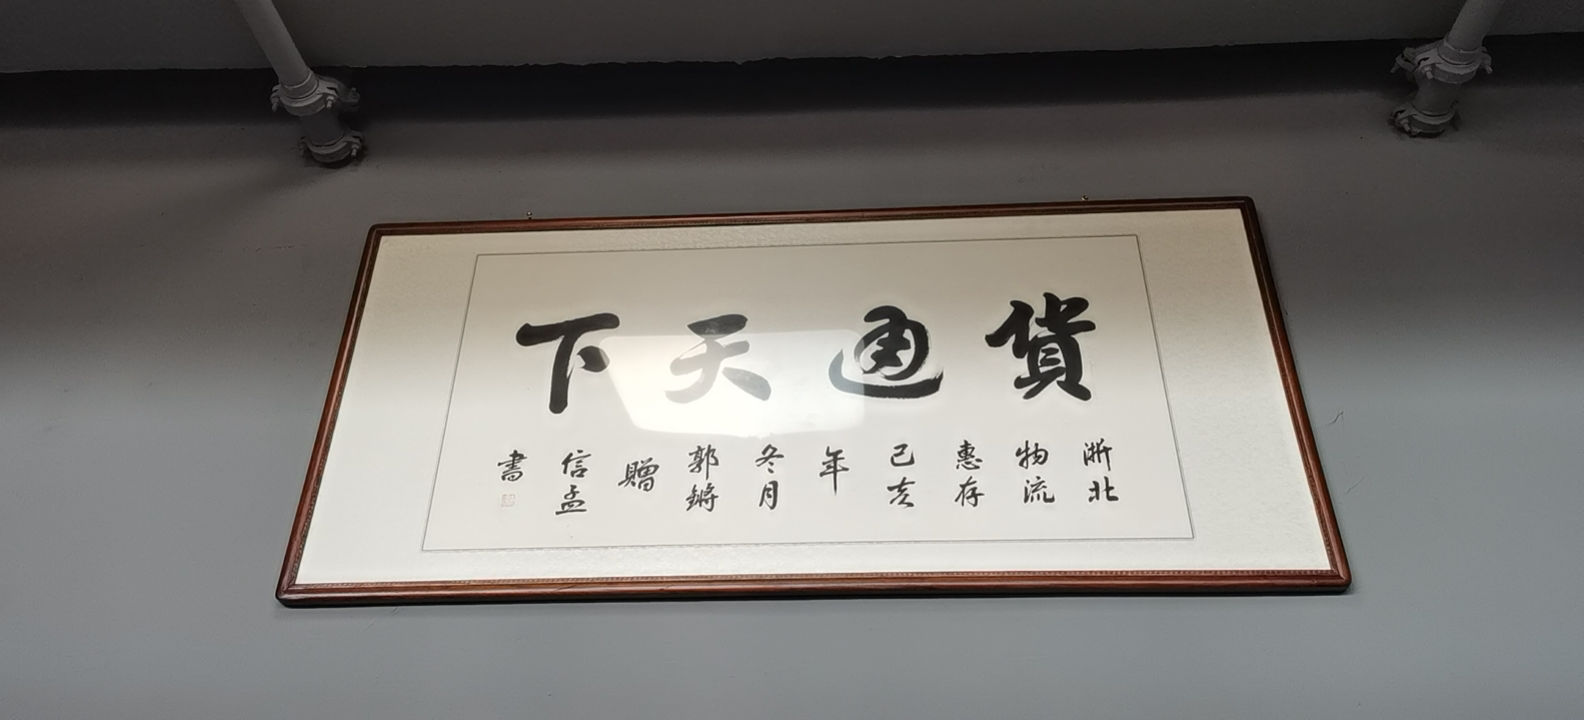 貨通天下
浙北物流惠存己亥年冬月郭鏘贈信孟書